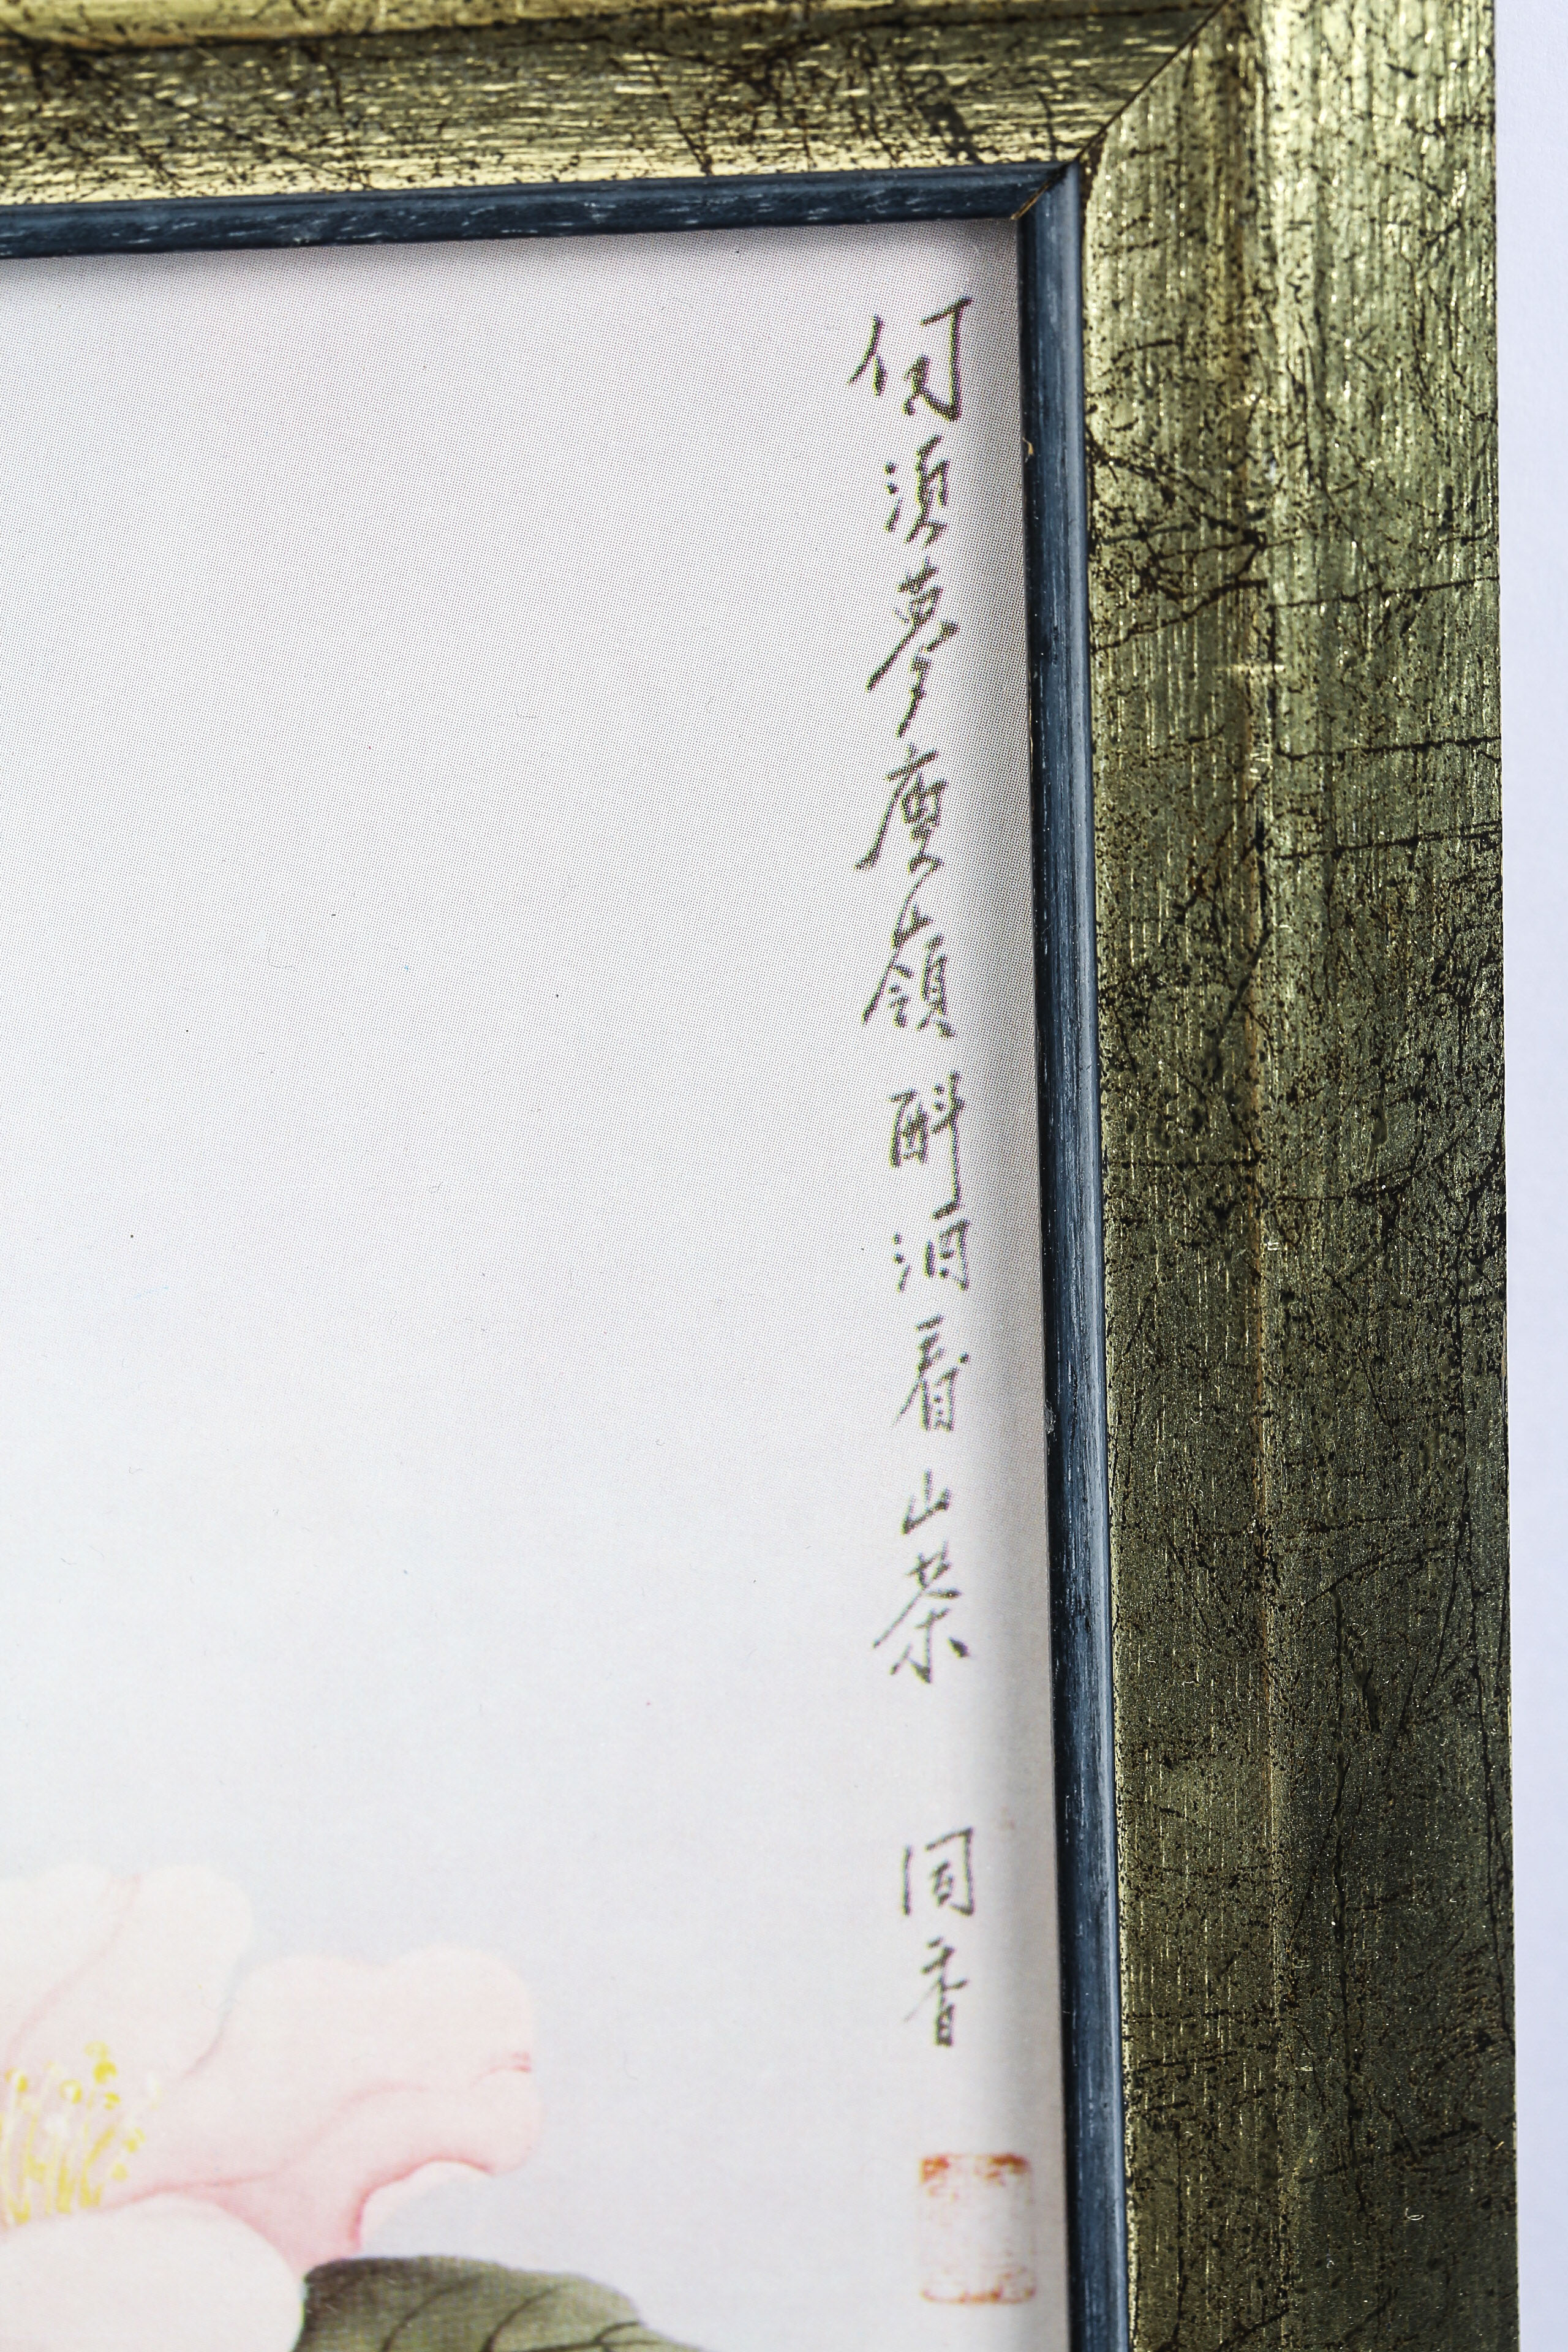 何須夢庾嶺酙酒看山茶
香